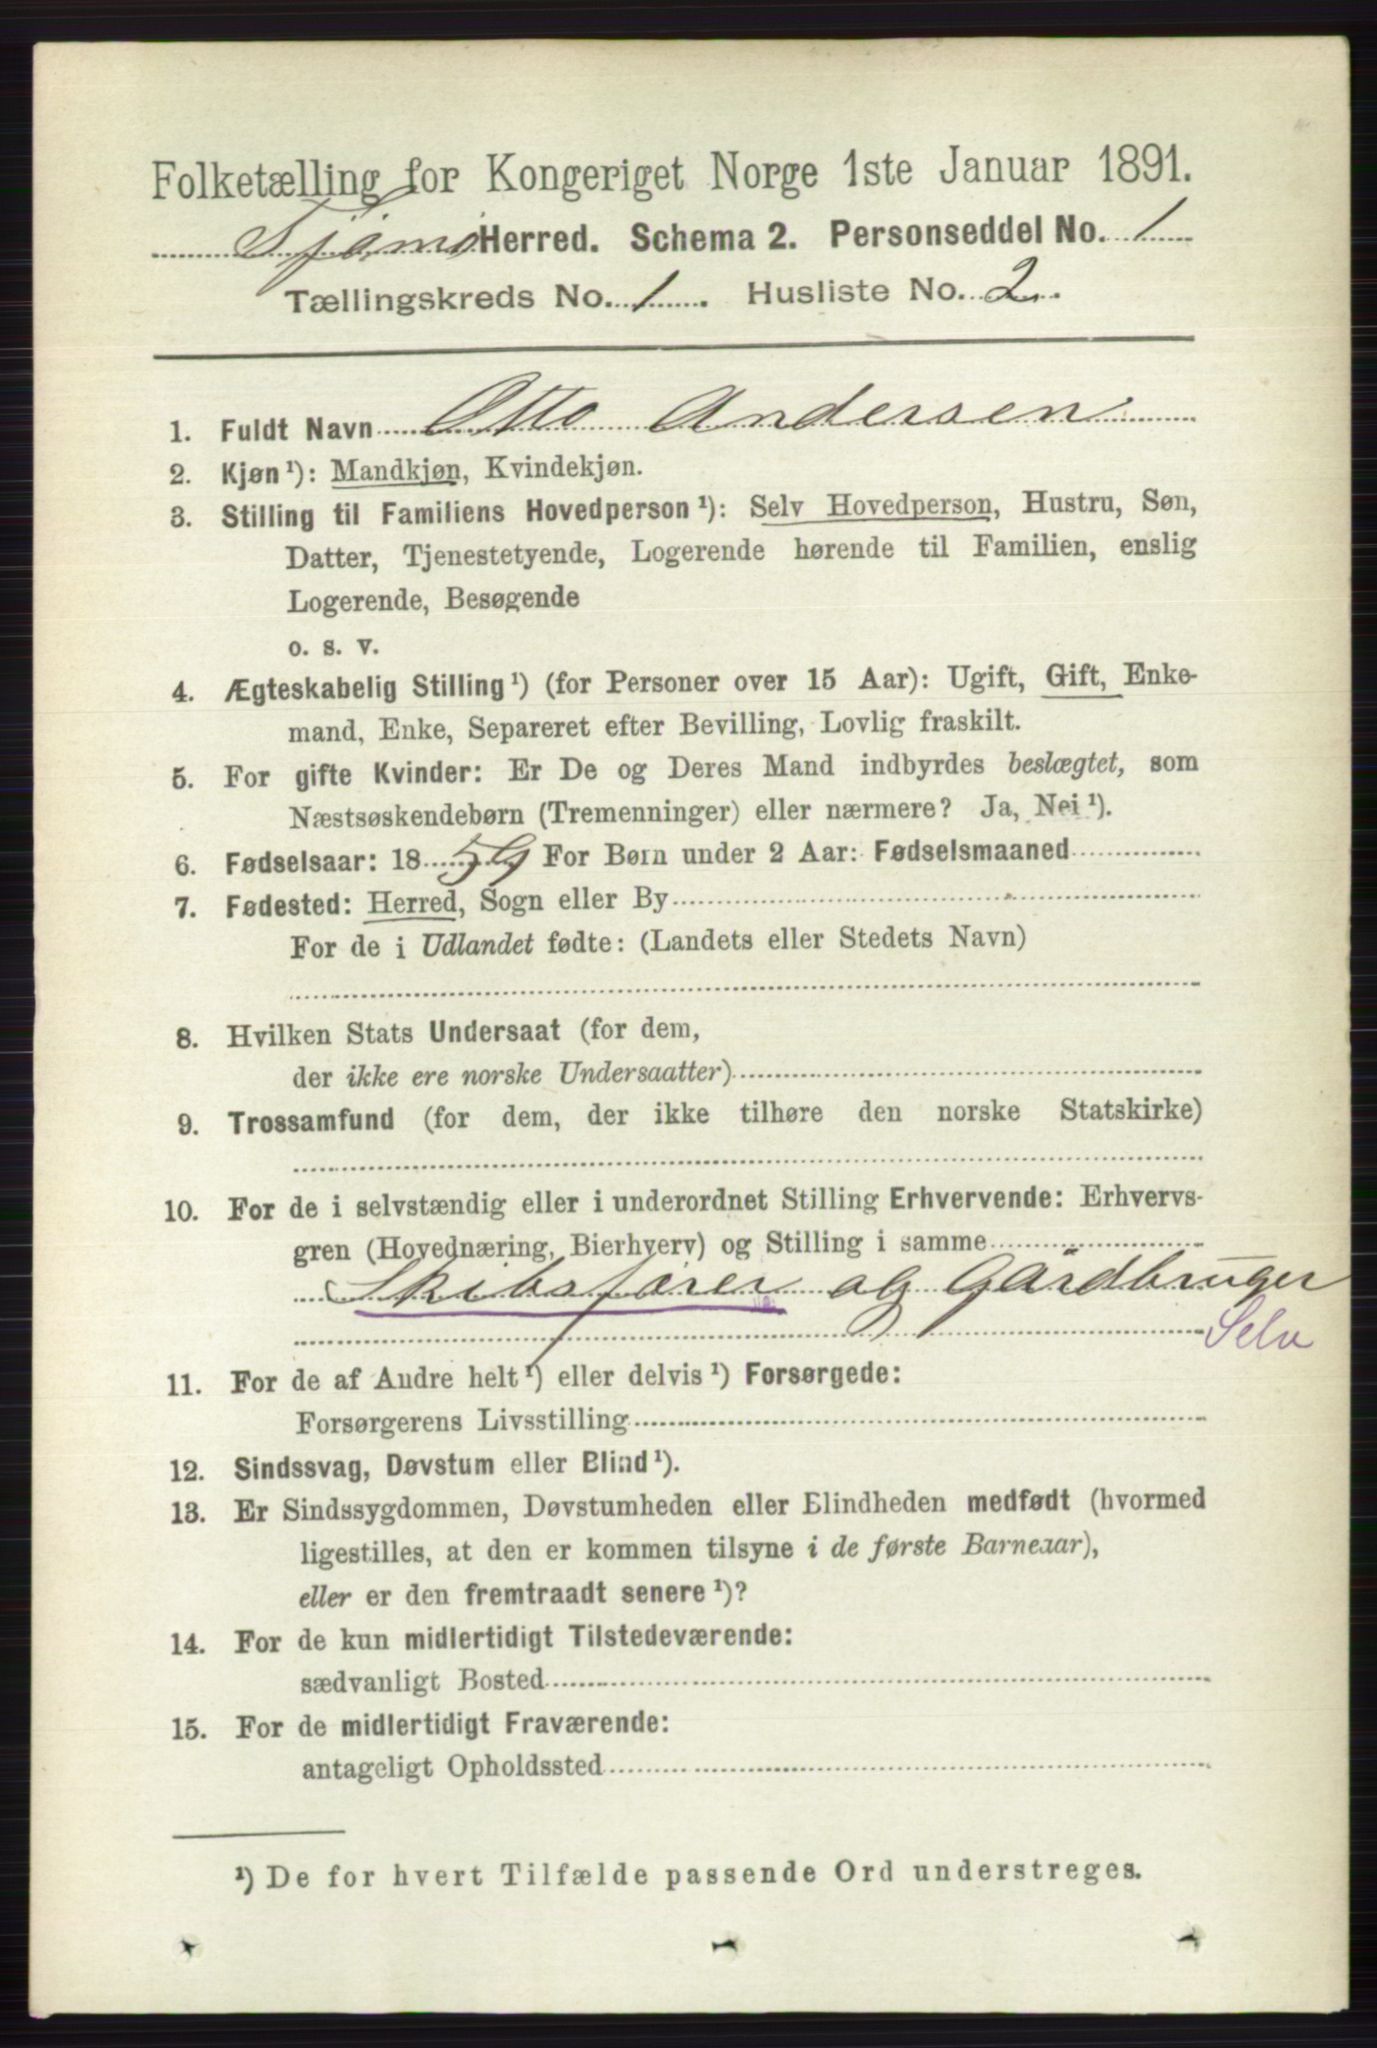 Folketælling for Kongeriget Norge 1ste Januar 1891.
Tjømø Herred. Schema 2. Personseddel No. 1
Tællingskreds No. 1. Husliste No. 2.
1. Fuldt Navn Otto Andersen
2. Kjøn¹): Mandkjøn, Kvindekjøn.
3. Stilling til Familiens Hovedperson¹): Selv Hovedperson, Hustru, Søn,
Datter, Tjenestetyende, Logerende hørende til Familien, enslig
Logerende, Besøgende
o. s. v.
4. Ægteskabelig Stilling¹) (for Personer over 15 Aar): Ugift, Gift, Enke-
mand, Enke, Separeret efter Bevilling, Lovlig fraskilt.
5. For gifte Kvinder: Er De og Deres Mand indbyrdes beslægtet, som
Næstsøskendebørn (Tremenninger) eller nærmere? Ja, Nei¹).
6. Fødselsaar: 1859 For Børn under 2 Aar: Fødselsmaaned
7. Fødested: Herred, Sogn eller By
For de i Udlandet fødte: (Landets eller Stedets Navn)
8. Hvilken Stats Undersaat (for dem,
der ikke ere norske Undersaatter)
9. Trossamfund (for dem, der ikke tilhøre den norske Statskirke)
10. For de i selvstændig eller i underordnet Stilling Erhvervende: Erhvervs-
gren (Hovednæring, Bierhverv) og Stilling i samme
Skibsfører og Gårdbruger
Selv
11. For de af Andre helt¹) eller delvis¹) Forsørgede:
Forsørgerens Livsstilling
12. Sindssvag, Døvstum eller Blind¹).
13. Er Sindssygdommen, Døvstumheden eller Blindheden medfødt (hvormed
ligestilles, at den er kommen tilsyne i de første Barneaar),
eller er den fremtraadt senere¹)?
14. For de kun midlertidigt Tilstedeværende:
sædvanligt Bosted
15. For de midlertidigt Fraværende:
antageligt Opholdssted
¹) De for hvert Tilfælde passende Ord understreges.